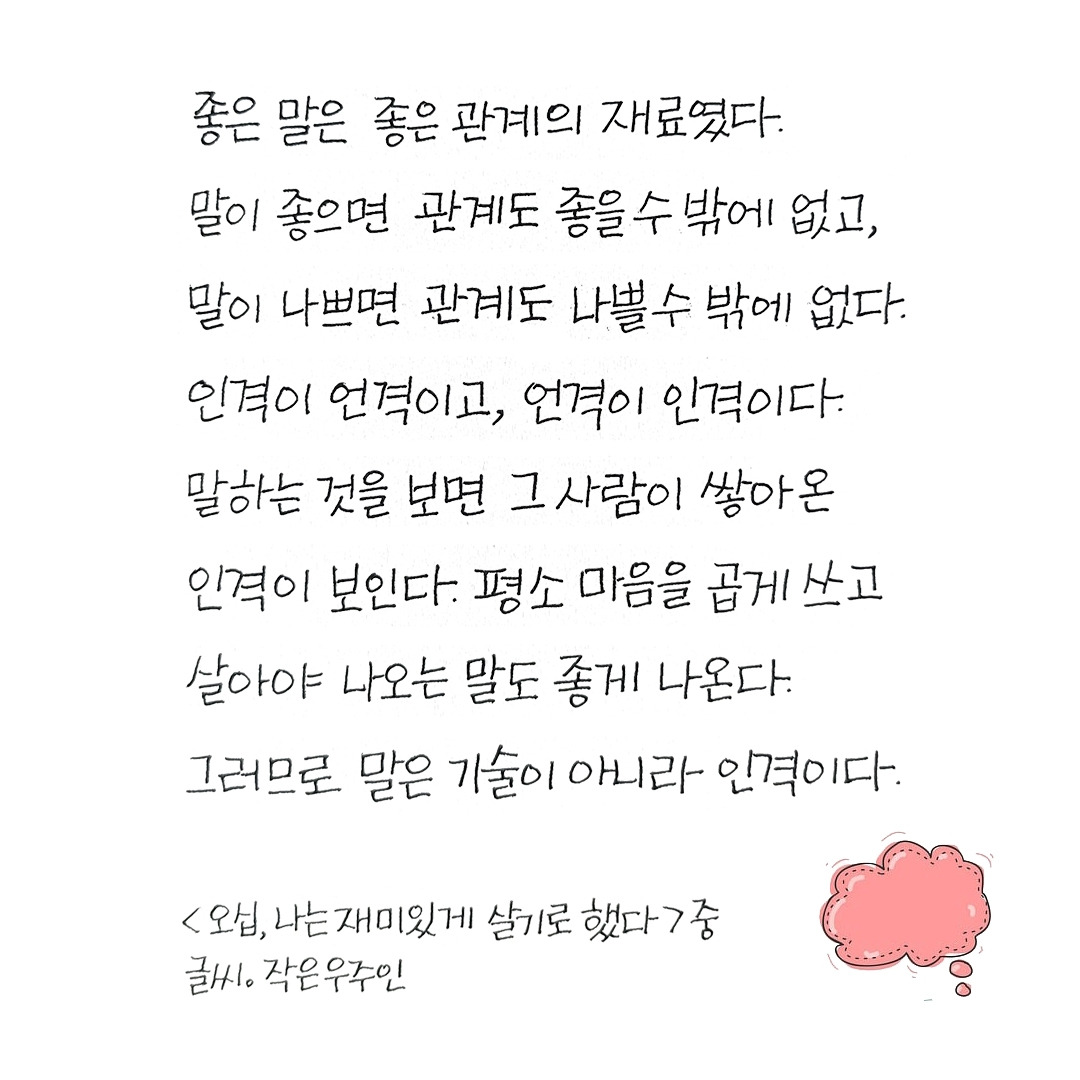 좋은 말은 좋은 관계의 재료였다.
말이 좋으면 관계도 좋을수 밖에 없고,
말이 나쁘면 관계도 나쁠수 밖에 없다.
인격이 언격이고, 언격이 인격이다.
말하는 것을 보면 그 사람이 쌓아온
인격이 보인다. 평소 마음을 곱게 쓰고
살아야 나오는 말도 좋게 나온다.
그러므로 말은 기술이 아니라 인격이다.
<오십, 나는 재미있게 살기로 했다> 중
글씨。작은우주인